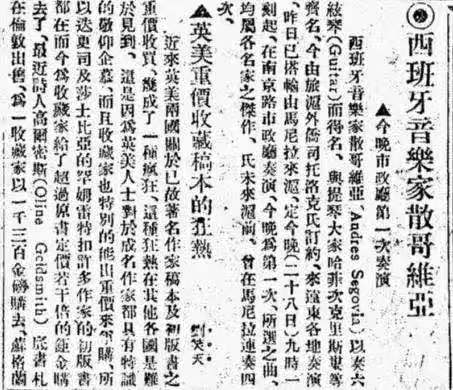 ◎西班牙音樂家散哥維亞
▲今晚市政廳第一次奏演
西班牙音樂家散哥維亞 Andres Segovia, 以奏六
絃琴(Guitar)而得名、與提琴大家哈菲次克里斯萊等
齊名、今由旅滬外僑司托洛克氏訂約、來遠東各地奏演
、昨日已搭輪由馬尼拉來滬、定今晚(二十八日)九時一
刻起、在南京路市政廳奏演、今晚爲第一次、所選之曲、
均屬各名家之傑作、氏未來滬前、曾在馬尼拉連奏四
次、
英美重價收藏稿本的狂熱
近來英美兩國關於已故著名作家稿本及初版書之
重價收買、幾成了一種瘋狂、這種狂熱在其他各國是難
於見到、這是因爲英美人士對於成名作家都具有特識
的敬仰企慕、而且收藏家也特別的能出重價來爭購、所
以迭更司及莎士比亞的罕姆雷特扣許多作家的初版書
都在而今爲收藏家給了超過原書定價若干倍的鉅金購
去了、最近詩人高爾密斯(Oline Goldsmith)底書札
在倫敦出售、爲一收藏家以一千三百金磅購去、蘇格蘭